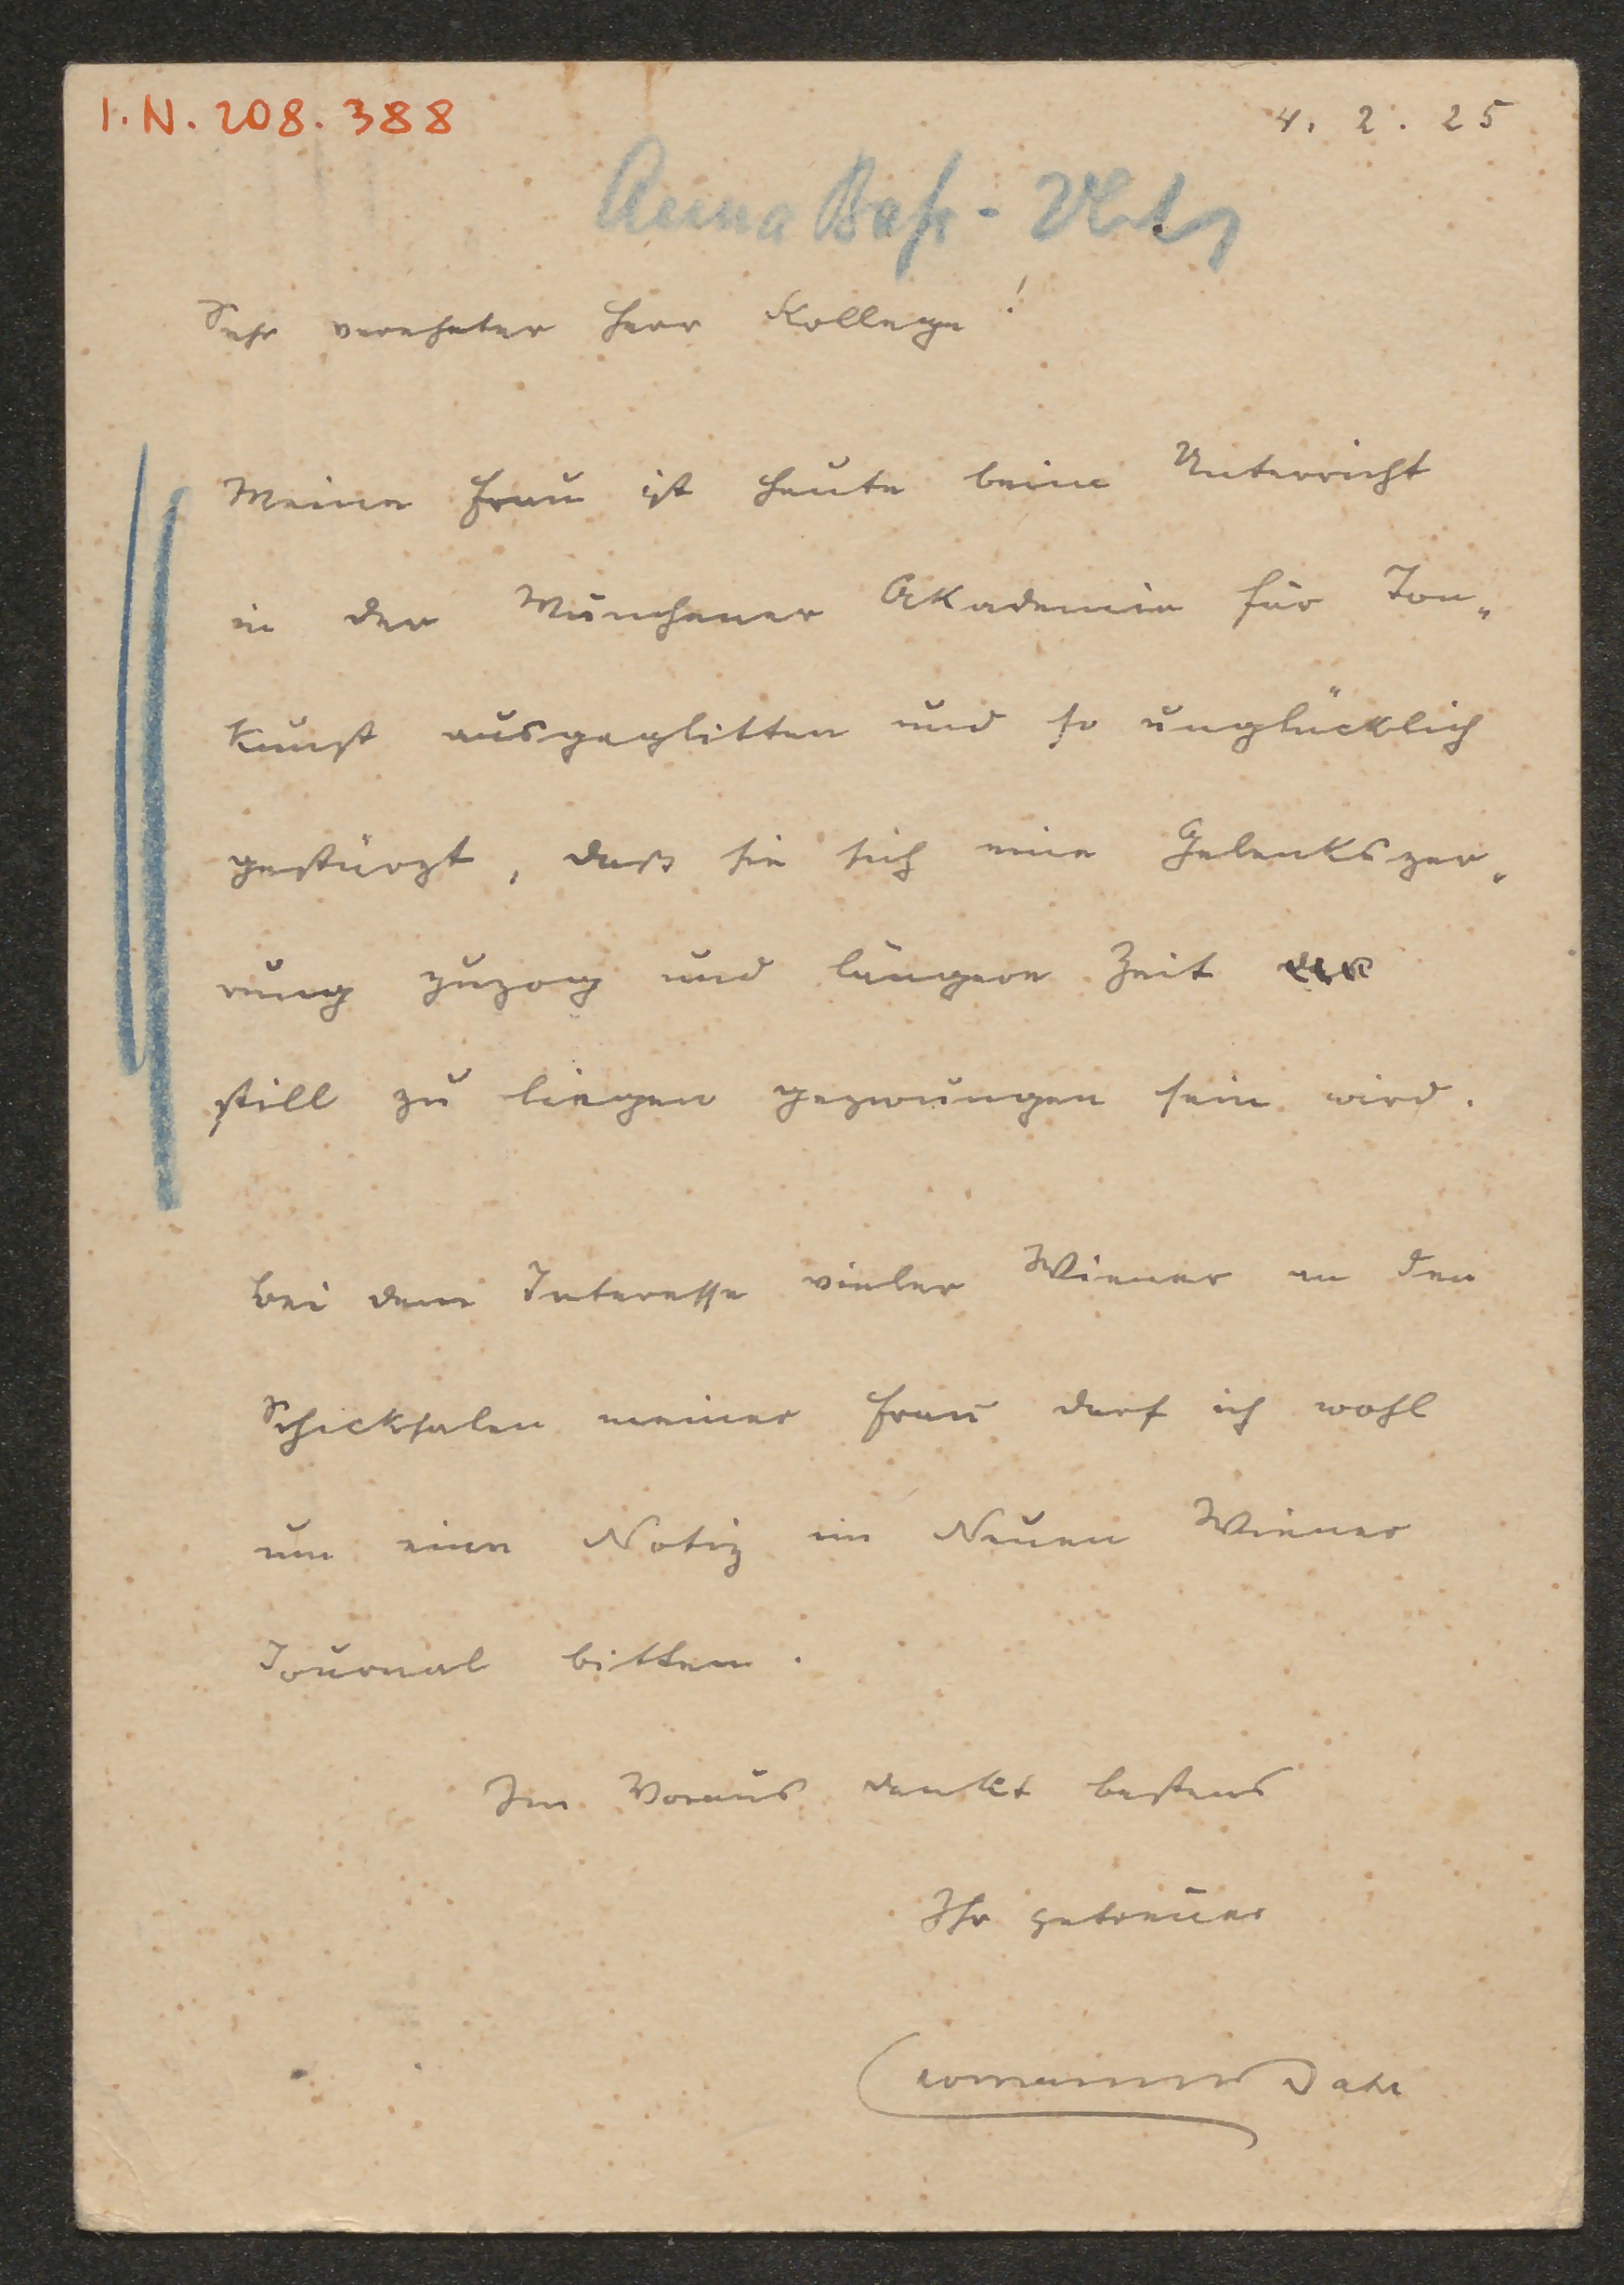 I.N. 208.388
4. 2. 25
Anna Bahr-Mbg
Sehr verehrter Herr Kollege!
Meine Frau ist heute beim Unterricht
in der Münchener Akademie für Ton„
kunst ausgeglitten und so unglücklich
gestürzt, daß sie sich eine Gelenkszer„
rung zuzog und längere Zeit
still zu liegen gezwungen sein wird.
Bei dem Interesse vieler Wiener an den
Schicksalen meiner Frau darf ich wohl
um eine Notiz im Neuen Wiener
Journal bitten.
Im Voraus dankt bestens
Ihr getreuer
Hermann Bahr